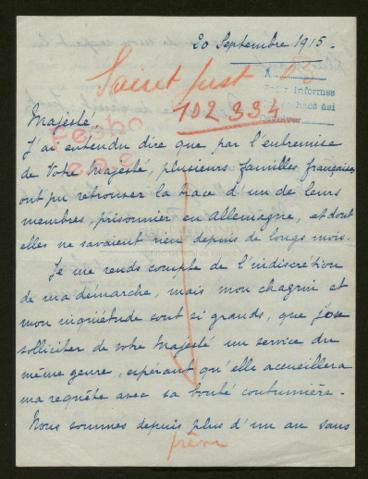 20 Septembre 1915.
Saint Just
103
102.334
Majesté,
J'ai entendu dire que par l'entremise
de Votre Majesté, plusieurs familles françaises
ont pu retrouver la trace d'un de leurs
membres, prisonnier en Allemagne, et dont
elles ne savaient rien depuis de longs mois.
Je me rends compte de l'indiscrétion
de ma démarche, mais mon chagrin et
mon inquiétude sont si grands, que j'ose
solliciter de votre Majesté un service du
même genre, espérant qu'elle accueillera
ma requête avec sa bonté coutumière.
Nous sommes depuis plus d'un an sans
frère